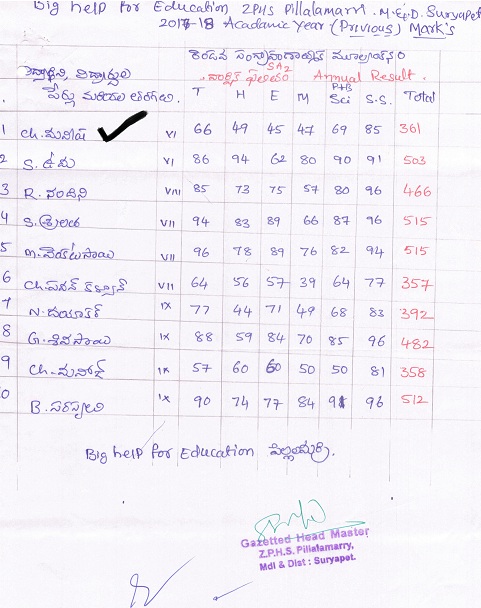 Big help For Education ZPHS Pillalamarri. M&D. Suryapet
2017-18 Acadamic Year (Previous) Mark's
SA2
Annual Result.
T H E M P+B Sci S.S. Total
1 Ch. మనీష VI 66 49 45 47 69 85 361
2 S. ఉమ VI 86 94 62 80 90 91 503
3 R. నందిని VIII 85 73 75 57 80 96 466
4 S. VII 94 83 89 66 87 96 515
5 m. VII 96 78 89 76 82 94 515
6 Ch. పవన్ కళ్యాణ్ VII 64 56 57 39 64 77 357
7 N. దయాకర్ IX 77 44 71 49 68 83 392
8 G. శివసాయి IX 88 59 84 70 85 96 482
9 Ch. మనోజ్ IX 57 60 60 50 50 81 358
10 B. IX 90 74 77 84 91 96 512
Big help for Education పిల్లలమర్రి.
Gazetted Head Master
Z.P.H.S. Pillalamarry,
Mdl & Dist : Suryapet.